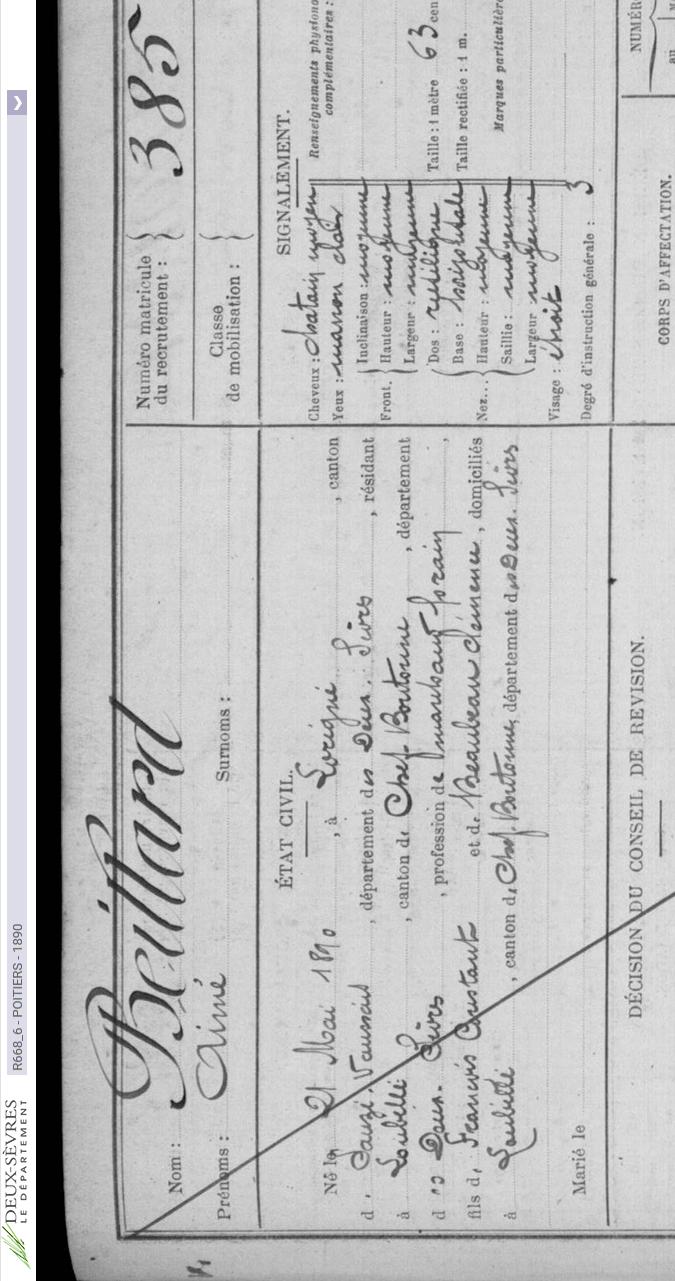 DEUX-SÈVRES
LE DÉPARTEMENT
R668_6 - POITIERS - 1890
Nom : Beillard
Prénoms : Aimé Surnoms :
Numéro matricule
du recrutement : 385
Classe
de mobilisation :
ÉTAT CIVIL.
Né le 21 Mai 1890, à Lorigné, canton
d. Sauzé-Vaussais, département des Deux-Sèvres, résidant
à Loubillé, canton de Chef-Boutonne, département
des Deux-Sèvres, profession de marchand forain,
fils de François Constant et de Beaubeau Clémence, domiciliés
à Loubillé, canton de Chef-Boutonne, département des Deux-Sèvres
Marié le
SIGNALEMENT.
Cheveux : chatain moyen
Yeux : marron clair
Front. Inclinaison : moyenne
Hauteur : moyenne
Largeur : moyenne
Nez... Dos : rectiligne
Base : horizontale
Hauteur : moyenne
Saillie : moyenne
Largeur moyenne
Visage : étroit
Degré d'instruction générale : 3
Renseignements physiono
complémentaires :
Taille : 1 mètre 63 cen
Taille rectifiée : 1 m.
Marques particulière
DÉCISION DU CONSEIL DE REVISION.
CORPS D'AFFECTATION.
NUMÉRO
au